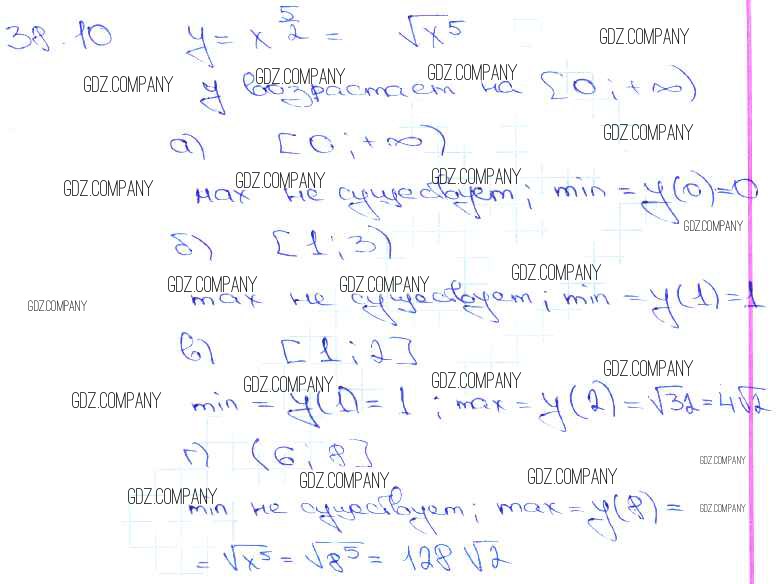 38.10 y = x^(5/2) = √x⁵
y возрастает на [0; +∞)
а) [0; +∞)
max не существует; min = y(0) = 0
б) [1; 3)
max не существует; min = y(1) = 1
в) [1; 2]
min = y(1) = 1; max = y(2) = √32 = 4√2
г) (6; 8]
min не существует; max = y(8) =
= √x⁵ = √8⁵ = 128√2
GDZ.COMPANY
GDZ.COMPANY GDZ.COMPANY GDZ.COMPANY
GDZ.COMPANY
GDZ.COMPANY GDZ.COMPANY GDZ.COMPANY
GDZ.COMPANY
GDZ.COMPANY GDZ.COMPANY GDZ.COMPANY
GDZ.COMPANY
GDZ.COMPANY GDZ.COMPANY GDZ.COMPANY GDZ.COMPANY
GDZ.COMPANY
GDZ.COMPANY GDZ.COMPANY GDZ.COMPANY GDZ.COMPANY